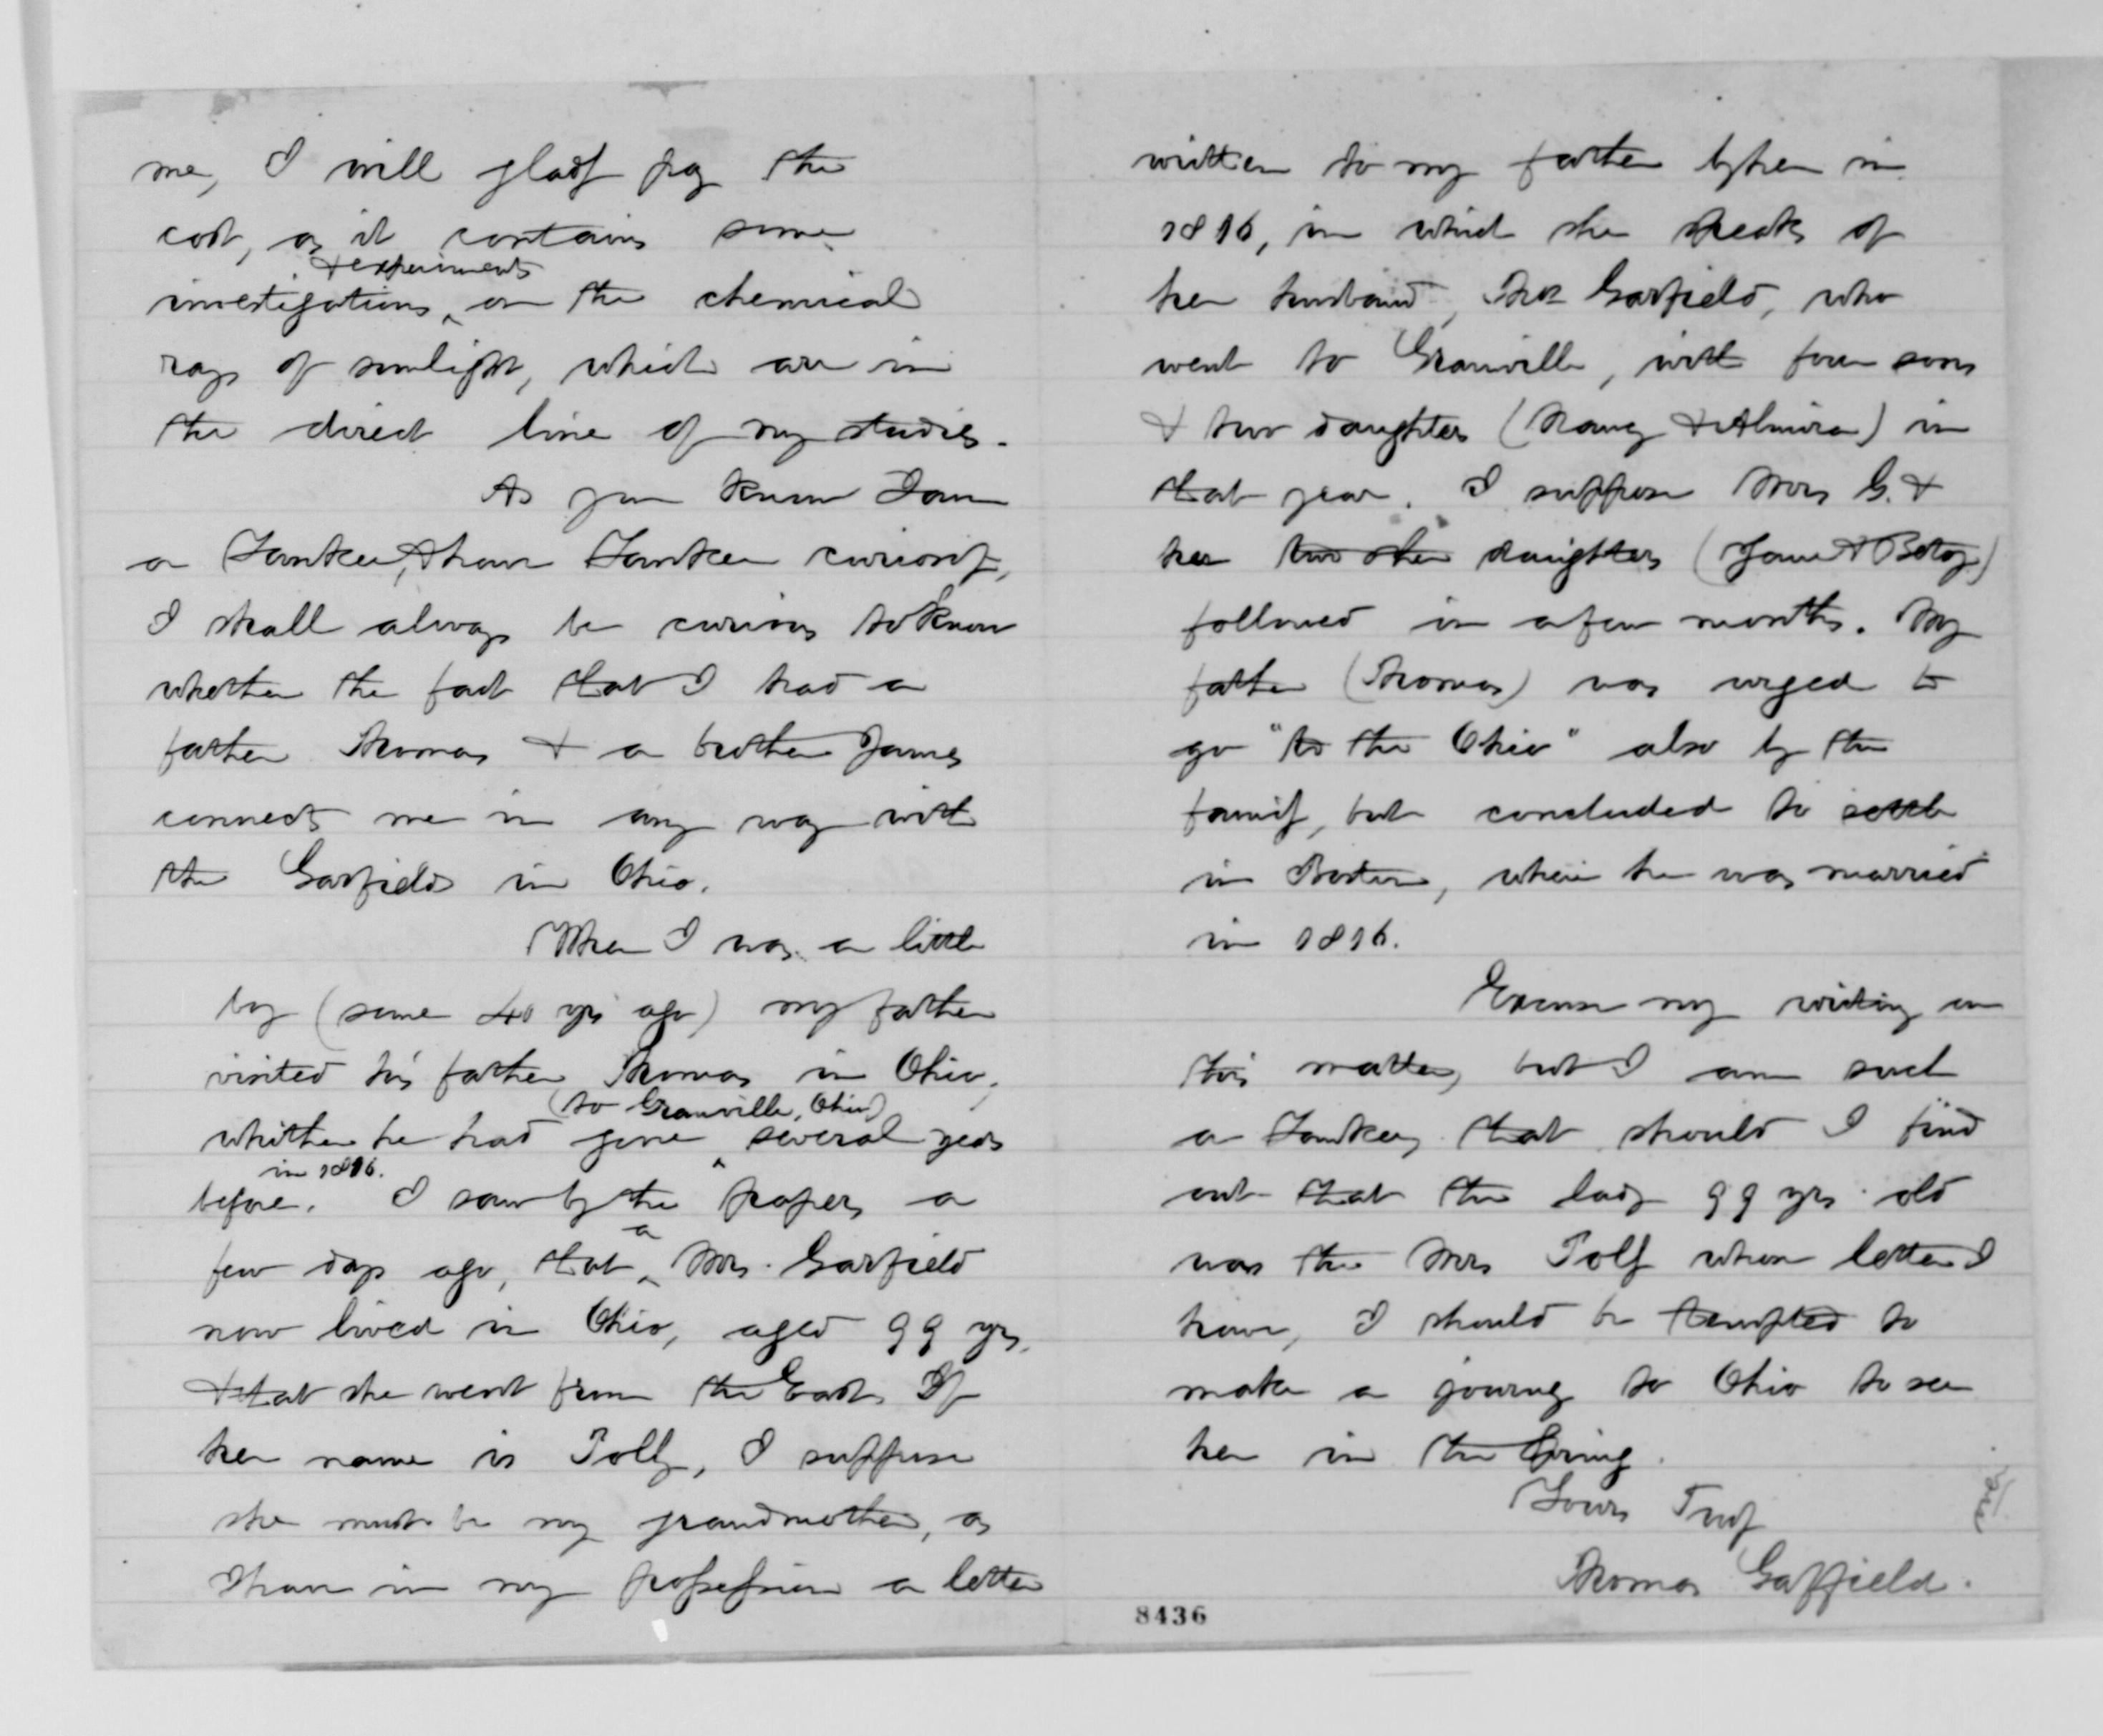 me, I will gladly pay the
cost, as it contains some
& experiments
investigations ^ on the chemical
rays of sunlight, which are in
the direct line of my studies.
As you know I am
a Yankee, & have Yankee curiosity,
I shall always be curious to know
whether the fact that I had a
father Thomas & a brother James
connects me in any way with
the Garfields in Ohio.
When I was a little
boy (some 40 yrs ago) my father
visited his father Thomas in Ohio,
(to Granville, Ohio)
whither he had gone ^ several years
in 1816.
before. I saw by the papers a
a
few days ago, that ^ Mrs. Garfield
now lived in Ohio, aged 99 yrs,
& that she went from the East. If
her name is Polly, I suppose
she must be my grandmother, as
I have in my possession a letter
written to my father by her in
1816, in which she speaks of
her husband, Thos Garfield, who
went to Granville, with four sons
& two daughters (Nancy & Almira) in
that year. I suppose Mrs G. &
her two other daughters (Jane & Betsy)
followed in a few months. My
father (Thomas) was urged to
go "to the Ohio" also by the
family, but concluded to settle
in Boston, where he was married
in 1816.
Excuse my writing on
this matter, but I am such
a Yankee, that should I find
out that the lady 99 yrs old
was the Mrs Polly whose letter I
have, I should be tempted to
make a journey to Ohio to see
her in the Spring.
Yours Truly
Thomas Gaffield.
over
8436